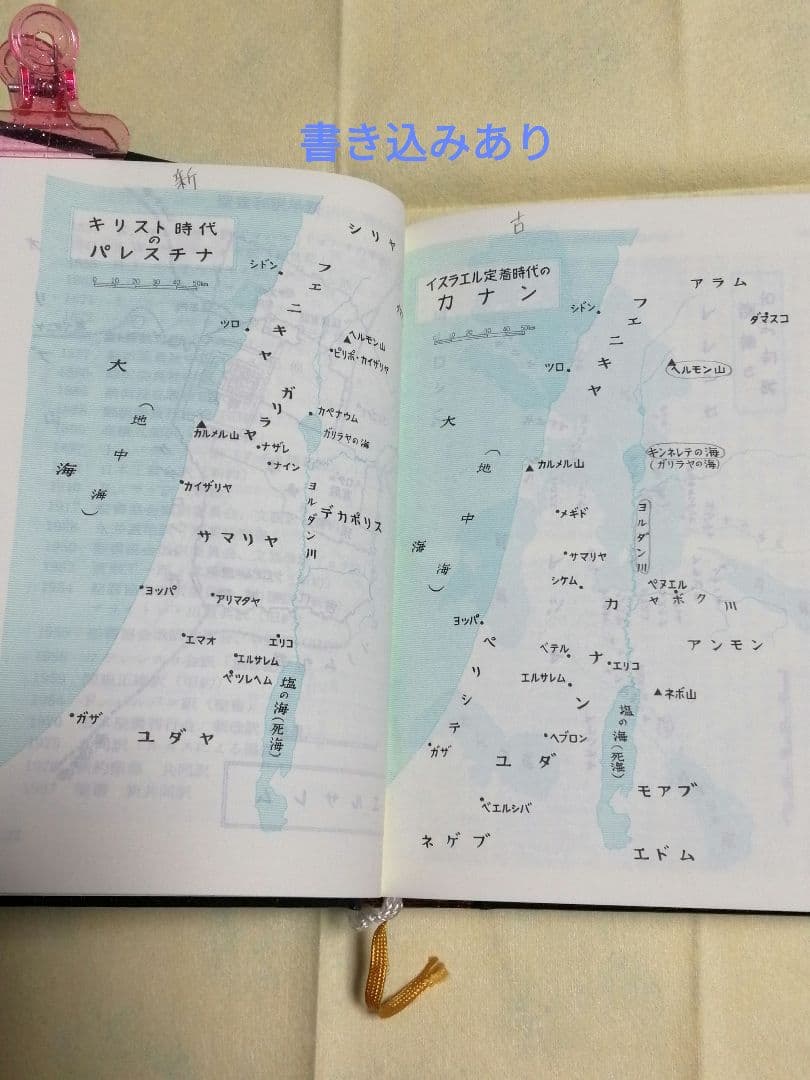 書き込みあり
新
キリスト時代
の
パレスチナ
0 10 20 30 40 50km
シリヤ
シドン
フェニキヤ
ツロ
ヘルモン山
ピリポ・カイザリヤ
大海
(地中海)
ガリラヤ
カペナウム
ガリラヤの海
カルメル山
ナザレ
ナイン
カイザリヤ
ヨルダン川
デカポリス
サマリヤ
ヨッパ
アリマタヤ
エマオ
エリコ
エルサレム
ベツレヘム
塩の海(死海)
ガザ
ユダヤ
古
イスラエル定着時代の
カナン
0 10 20 30 40 50km
アラム
シドン
フェニキヤ
ダマスコ
ツロ
ヘルモン山
大海
(地中海)
キンネレテの海
(ガリラヤの海)
カルメル山
メギド
ヨルダン川
サマリヤ
シケム
ペヌエル
ヤボク川
カナン
ヨッパ
ペリシテ
ベテル
エリコ
アンモン
エルサレム
ネボ山
塩の海(死海)
ヘブロン
ガザ
ユダ
モアブ
ベエルシバ
ネゲブ
エドム